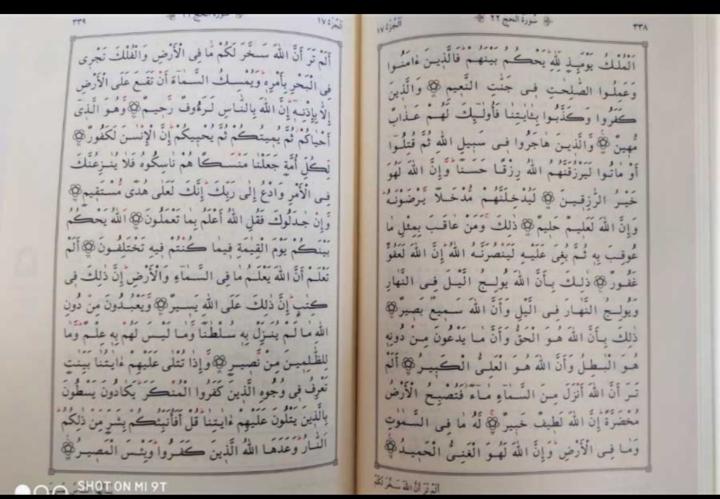 ٣٣٨ ﴿ سورة الحج ٢٢ ﴾ الجزء ١٧
الْمُلْكُ يَوْمَئِذٍ لِلَّهِ يَحْكُمُ بَيْنَهُمْ فَالَّذِينَ ءَامَنُوا
وَعَمِلُوا الصَّٰلِحَٰتِ فِى جَنَّٰتِ النَّعِيمِ ۝ وَالَّذِينَ
كَفَرُوا وَكَذَّبُوا بِـَٔايَٰتِنَا فَأُولَٰئِكَ لَهُمْ عَذَابٌ
مُهِينٌ ۝ وَالَّذِينَ هَاجَرُوا فِى سَبِيلِ اللَّهِ ثُمَّ قُتِلُوا
أَوْ مَاتُوا لَيَرْزُقَنَّهُمُ اللَّهُ رِزْقًا حَسَنًا وَإِنَّ اللَّهَ لَهُوَ
خَيْرُ الرَّٰزِقِينَ ۝ لَيُدْخِلَنَّهُمْ مُدْخَلًا يَرْضَوْنَهُ
وَإِنَّ اللَّهَ لَعَلِيمٌ حَلِيمٌ ۝ ذَٰلِكَ وَمَنْ عَاقَبَ بِمِثْلِ مَا
عُوقِبَ بِهِ ثُمَّ بُغِىَ عَلَيْهِ لَيَنْصُرَنَّهُ اللَّهُ إِنَّ اللَّهَ لَعَفُوٌّ
غَفُورٌ ۝ ذَٰلِكَ بِأَنَّ اللَّهَ يُولِجُ الَّيْلَ فِى النَّهَارِ
وَيُولِجُ النَّهَارَ فِى الَّيْلِ وَأَنَّ اللَّهَ سَمِيعٌ بَصِيرٌ ۝
ذَٰلِكَ بِأَنَّ اللَّهَ هُوَ الْحَقُّ وَأَنَّ مَا يَدْعُونَ مِنْ دُونِهِ
هُوَ الْبَٰطِلُ وَأَنَّ اللَّهَ هُوَ الْعَلِىُّ الْكَبِيرُ ۝ أَلَمْ
تَرَ أَنَّ اللَّهَ أَنْزَلَ مِنَ السَّمَاءِ مَاءً فَتُصْبِحُ الْأَرْضُ
مُخْضَرَّةً إِنَّ اللَّهَ لَطِيفٌ خَبِيرٌ ۝ لَهُ مَا فِى السَّمَٰوَٰتِ
وَمَا فِى الْأَرْضِ وَإِنَّ اللَّهَ لَهُوَ الْغَنِىُّ الْحَمِيدُ ۝
الجزء ١٧ ﴿ سورة الحج ٢٢ ﴾ ٣٣٩
أَلَمْ تَرَ أَنَّ اللَّهَ سَخَّرَ لَكُمْ مَا فِى الْأَرْضِ وَالْفُلْكَ تَجْرِى
فِى الْبَحْرِ بِأَمْرِهِ وَيُمْسِكُ السَّمَاءَ أَنْ تَقَعَ عَلَى الْأَرْضِ
إِلَّا بِإِذْنِهِ إِنَّ اللَّهَ بِالنَّاسِ لَرَءُوفٌ رَحِيمٌ ۝ وَهُوَ الَّذِى
أَحْيَاكُمْ ثُمَّ يُمِيتُكُمْ ثُمَّ يُحْيِيكُمْ إِنَّ الْإِنْسَٰنَ لَكَفُورٌ ۝
لِكُلِّ أُمَّةٍ جَعَلْنَا مَنْسَكًا هُمْ نَاسِكُوهُ فَلَا يُنَٰزِعُنَّكَ
فِى الْأَمْرِ وَادْعُ إِلَى رَبِّكَ إِنَّكَ لَعَلَى هُدًى مُسْتَقِيمٍ ۝
وَإِنْ جَٰدَلُوكَ فَقُلِ اللَّهُ أَعْلَمُ بِمَا تَعْمَلُونَ ۝ اللَّهُ يَحْكُمُ
بَيْنَكُمْ يَوْمَ الْقِيَٰمَةِ فِيمَا كُنْتُمْ فِيهِ تَخْتَلِفُونَ ۝ أَلَمْ
تَعْلَمْ أَنَّ اللَّهَ يَعْلَمُ مَا فِى السَّمَاءِ وَالْأَرْضِ إِنَّ ذَٰلِكَ فِى
كِتَٰبٍ إِنَّ ذَٰلِكَ عَلَى اللَّهِ يَسِيرٌ ۝ وَيَعْبُدُونَ مِنْ دُونِ
اللَّهِ مَا لَمْ يُنَزِّلْ بِهِ سُلْطَٰنًا وَمَا لَيْسَ لَهُمْ بِهِ عِلْمٌ وَمَا
لِلظَّٰلِمِينَ مِنْ نَصِيرٍ ۝ وَإِذَا تُتْلَى عَلَيْهِمْ ءَايَٰتُنَا بَيِّنَٰتٍ
تَعْرِفُ فِى وُجُوهِ الَّذِينَ كَفَرُوا الْمُنْكَرَ يَكَادُونَ يَسْطُونَ
بِالَّذِينَ يَتْلُونَ عَلَيْهِمْ ءَايَٰتِنَا قُلْ أَفَأُنَبِّئُكُمْ بِشَرٍّ مِنْ ذَٰلِكُمُ
النَّارُ وَعَدَهَا اللَّهُ الَّذِينَ كَفَرُوا وَبِئْسَ الْمَصِيرُ ۝
SHOT ON MI 9T